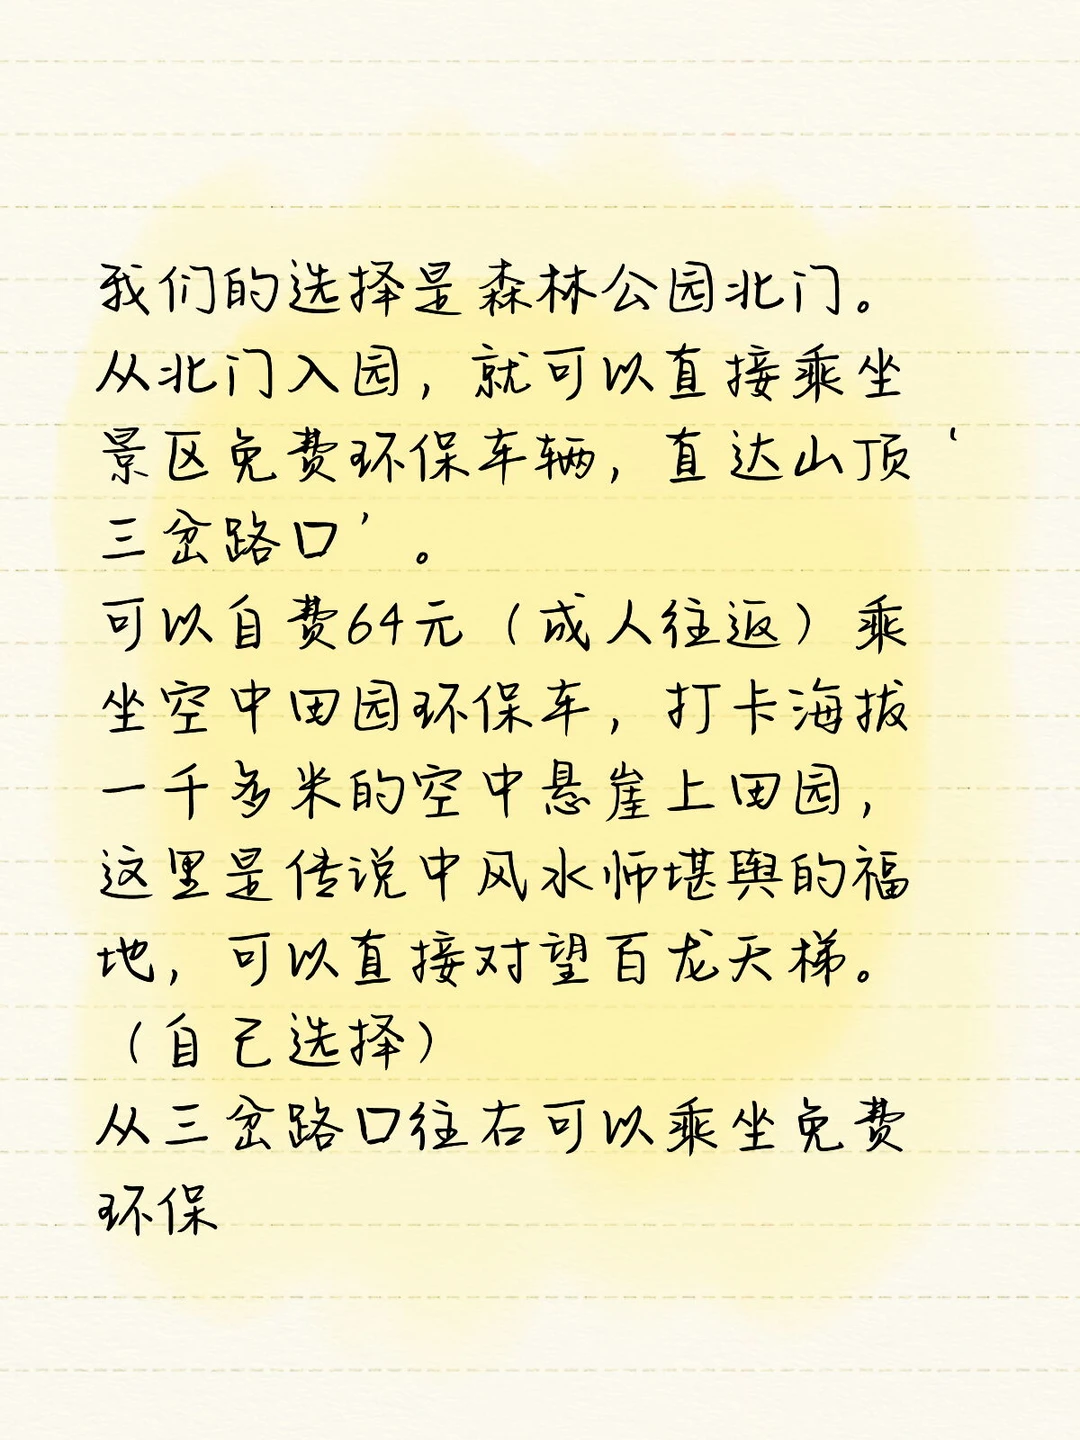 我们的选择是森林公园北门。
从北门入园，就可以直接乘坐
景区免费环保车辆，直达山顶‘
三岔路口’。
可以自费64元（成人往返）乘
坐空中田园环保车，打卡海拔
一千多米的空中悬崖上田园，
这里是传说中风水师堪舆的福
地，可以直接对望百龙天梯。
（自己选择）
从三岔路口往右可以乘坐免费
环保